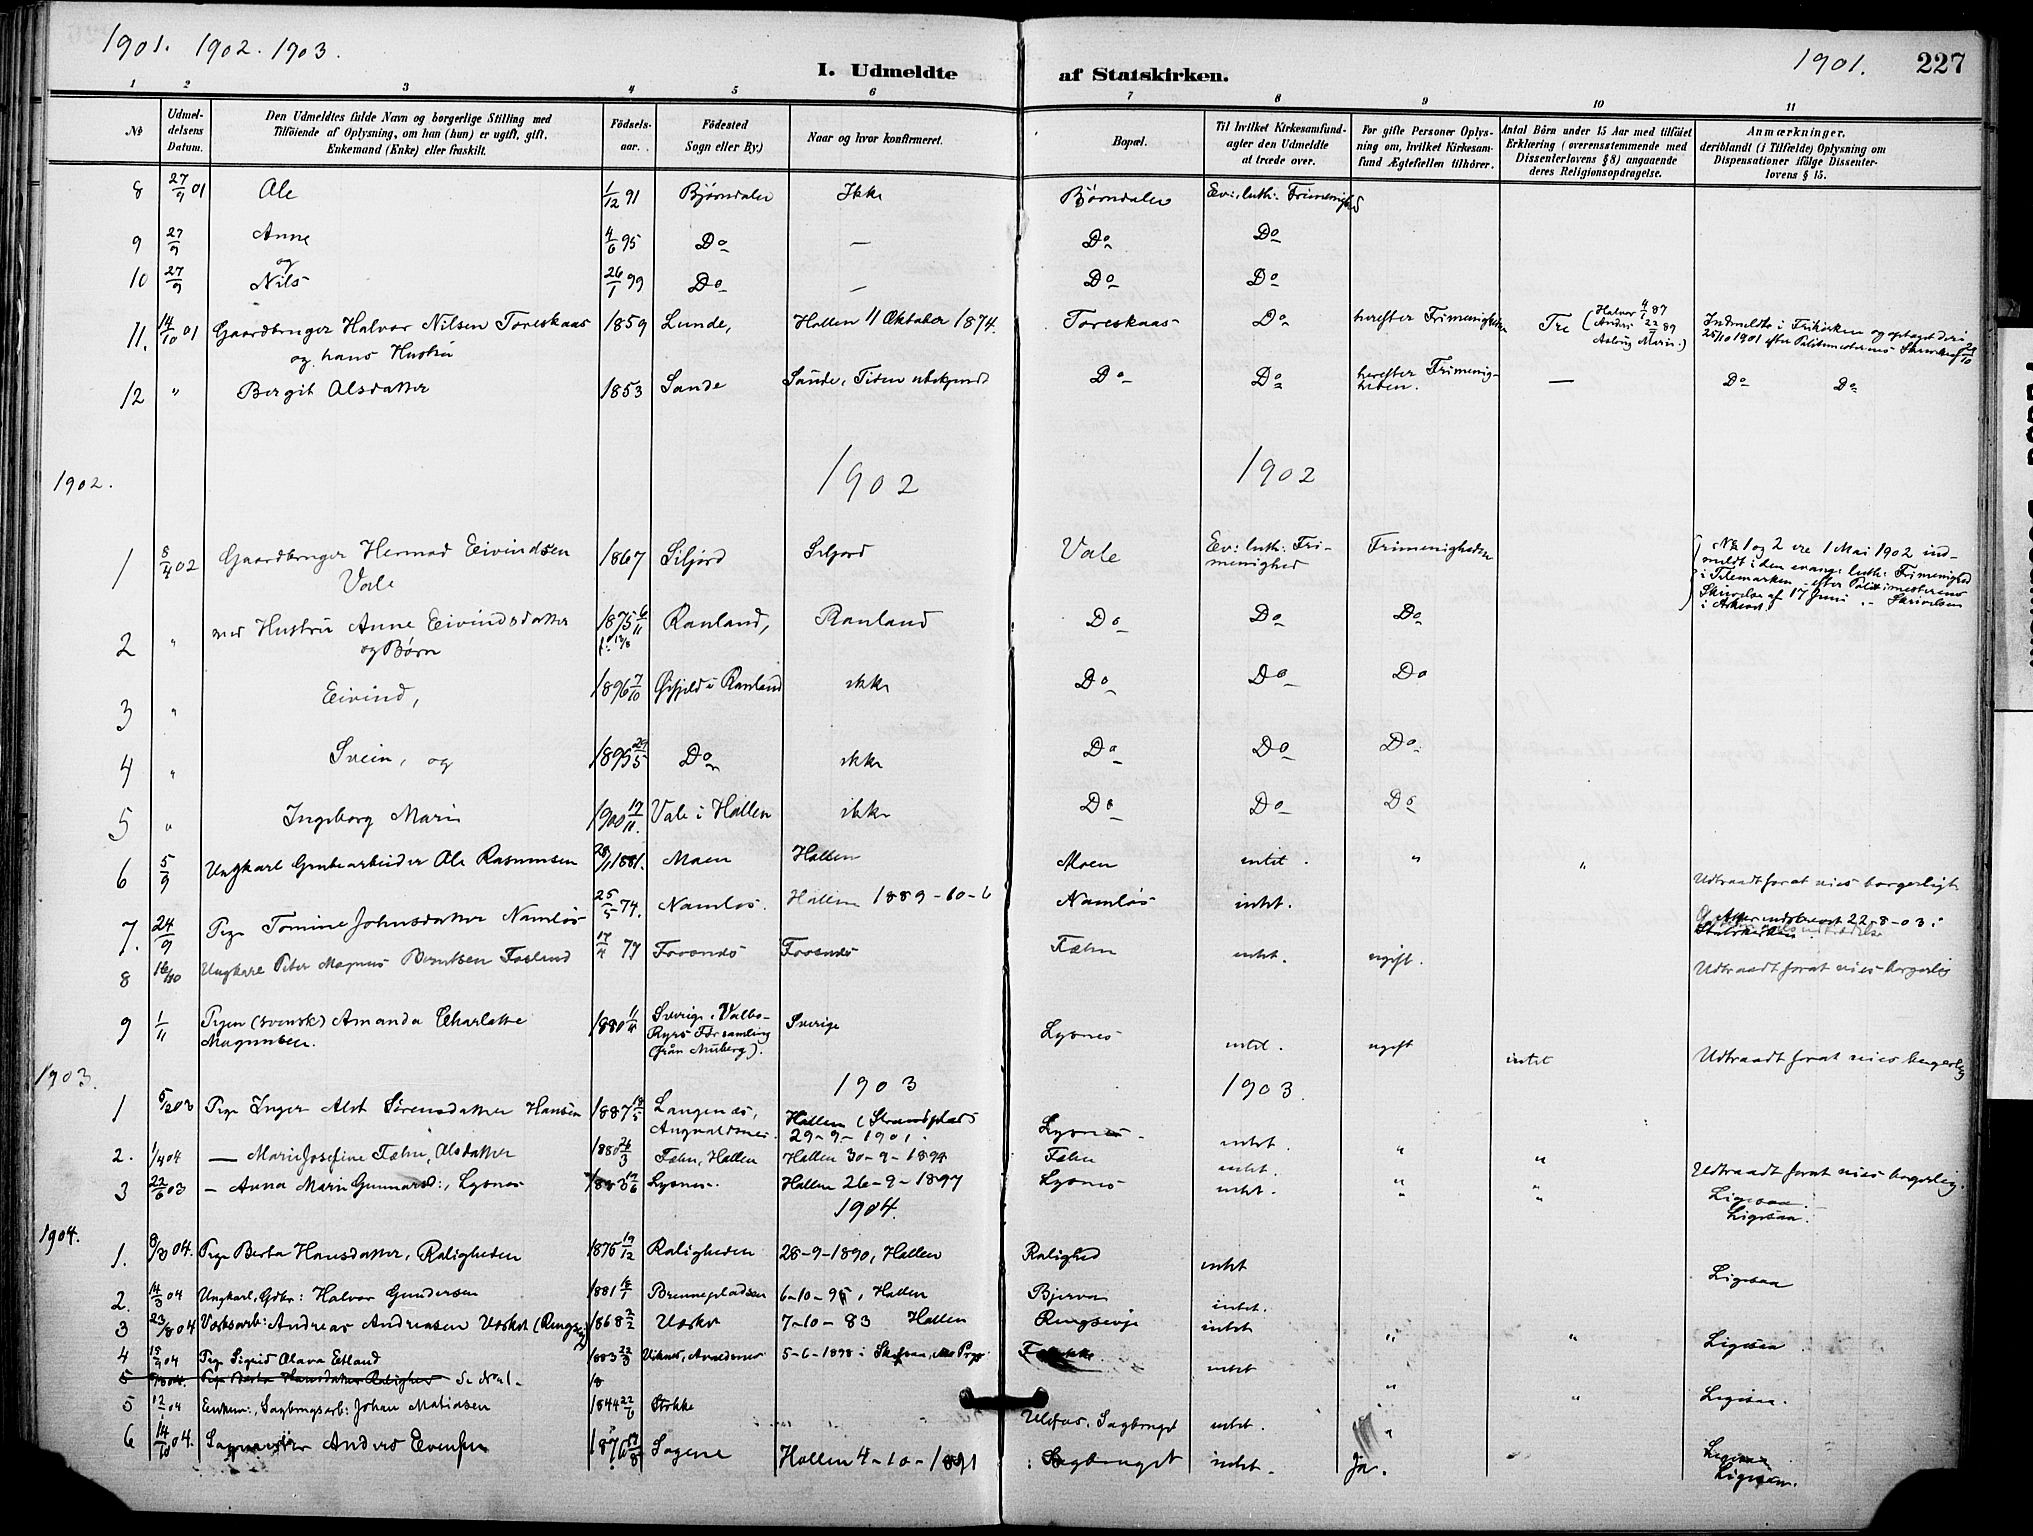 1901. 1902. 1903.
I. Udmeldte af Statskirken.
1901. 227
1 2 3 4 5 6 7 8 9 10 11
No
Udmeldelsens Datum.
Den Udmeldtes fulde Navn og borgerlige Stilling med
Tilføiende af Oplysning, om han (hun) er ugift, gift,
Enkemand (Enke) eller fraskilt.
Fødselsaar.
Fødested
Sogn eller By.)
Naar og hvor konfirmeret.
Bopæl.
Til hvilket Kirkesamfund-
agter den Udmeldte
at træde over.
For gifte Personer Oplys-
ning om, hvilket Kirkesam-
fund Ægtefællen tilhører.
Antal Børn under 15 Aar med tilføiet
Erklæring (overensstemmende med
Dissenterlovens § 8) angaaende
deres Religionsopdragelse.
Anmærkninger,
deriblandt (i Tilfælde) Oplysning om
Dispensationer ifølge Dissenter-
lovens § 15.
8 27/9 01 Ole 1/12 91 Bjørndalen Ikke Bjørndalen Ev: luth: Frimenighed
9 27/9 Anne 4/6 95 Do — Do Do
og
10 27/9 Nils 26/1 99 Do — Do Do
11. 14/10 01 Gaardbruger Halvor Nilsen Toreskaas 1859 Lunde, Hollen 11 Oktober 1874. Toreskaas Do herefter Frimenigheden Tre (Halvor 4/1 87
og hans Hustru
Indmeldte i Frikirken og optaget deri
25/10 1901 efter Politimesterens Skrivelse
12 " Bergit Olsdatter 1853 Sande Sande, Tiden ubekjendt Do Do herefter Frimenig-
heden. — Do Do
1902. 1902 1902
1 8/4 02 Gaardbruger Hermod Eivindsen 1867 Siljord Siljord Vale Ev: luth: Fri-
menighed Frimenigheden
Vale
No 1 og 2 ere 1 Mai 1902 ind-
meldt i den evang: luth: Frimenighed
i Telemarken – efter Politimesterens
Skrivelse af 17 Juni
i Arkivet.
2 " med Hustru Anne Eivindsdatter 1875 6/11 Rauland, Rauland Do Do Do
og Børn
3 " Eivind, 1896 7/10 Øifjeld i Rauland ikke Do Do Do
4 " Svein, og 1895 29/5 Do ikke Do Do Do
5 " Ingeborg Marie 1900 17/11 Vale i Hollen ikke Do Do Do
6 5/9 Ungkarl Grubearbeider Ole Rasmussen 28/1 1881. Moen Hollen Moen intet. " " Udtraadt forat vies borgerligt
7. 24/9 Pige Tomine Johnsdatter Namløs 25/5 74. Namløs. Hollen 1889-10-6 Namløs intet.
22-8-03
8 16/10 Ungkarl Peter Magnus Berntsen Fosland 17/4 77 Fosland ugift. intet. Udtraadt forat vies borgerlig
9 1/11 Pigen (svensk) Amanda Charlotte 1880 Sverige, Valbo- Sverige Lysnes intet. ugift intet Udtraadt forat vies borgerlig
Magnusen. Ryrs Församling
(från Muberg).
1903. 1903 1903.
1 5/2 03 Pige Inger Alet Sørensdatter Hansen 1887 Langenes, Hollen Lysnes. intet. " "
29-9-1901.
2. 1/4 04 — Marie Josefine Fæhn, Olsdatter 1880 26/3 Fæhn, Hollen Hollen 30-9-1894 Fæhn intet. " " Udtraadt forat vies borgerlig.
3 22/6 03 – Anna Marie Gunnarsd:, Lysnes Lysnes. Hollen 26-9-1897 Lysnes intet. " " Ligesaa.
Ligesaa.
1904. 1904.
1. 8/3 04. Pige Berta Hansdatter, Roligheden 1875 19/12 Roligheden 28-9-1890, Hollen Rolighed intet
2. 14/3 04 Ungkarl, Gdbr: Halvor Gundersen 1881 Brennepladsen 6-10-95, Hollen Bjerva intet. Ligesaa
3 23/8 04 Verksarb: Andreas Andreasen Værket 1868 2/2 Værket 7-10-83 Hollen Ringsevje intet " " Ligesaa
4 15/9 04 Pige Sigrid Olava Estland 1883 22/3 5-6-1898 intet " " Ligesaa.
5 Pige Berta Hansdatter Rolighed Se No 1. 18
5 12/ 04 Enkem:, Sagbrugsarb: Johan Matiasen 1844 22/6 Stokke Ulefos, Sagbruget intet. "
6 14/10 04. Sagmester Anders Evensen 1876 Sagene Hollen 4-10-1891 Sagbruget intet. Ja. Ligesaa
Ligesaa.